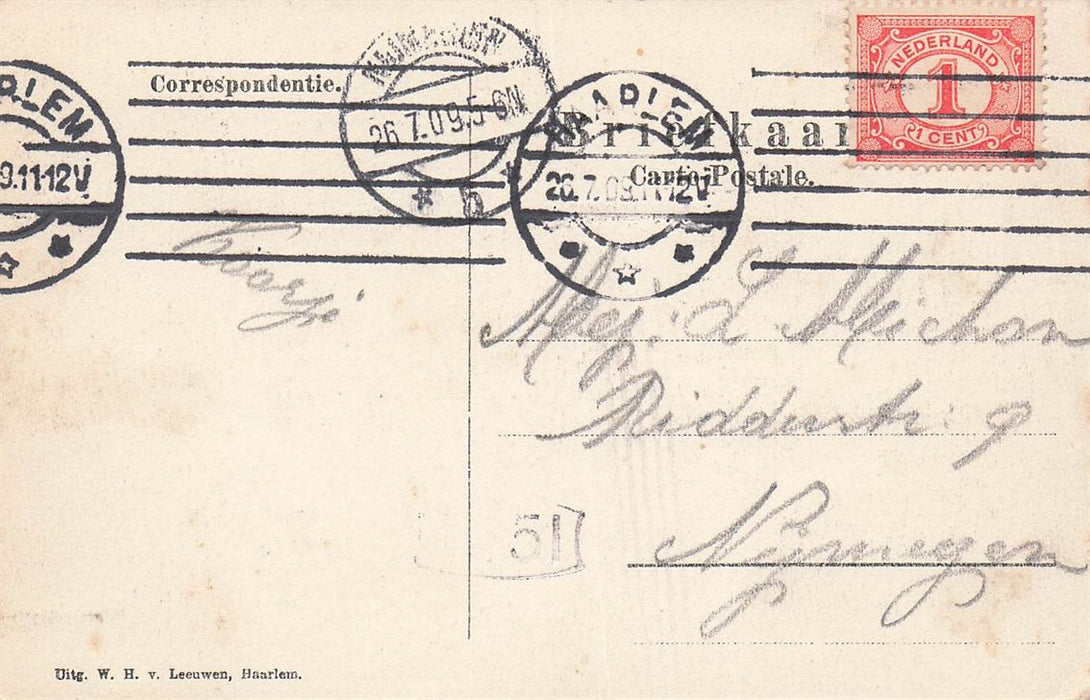 NEDERLAND
1
1 CENT
Correspondentie.
NIJMEGEN
26.7.09.5-6N
HAARLEM
26.7.09.11-12V
RLEM
9.11-12V
Briefkaar
Carte Postale.
L Michon
Ridderstr: 9
Nijmegen
51
Uitg. W. H. v. Leeuwen, Haarlem.